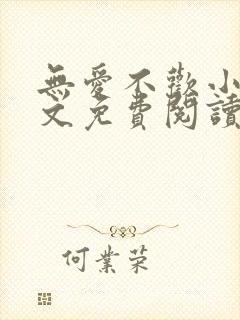 無愛不歡小
文免費閱讀
何業荣